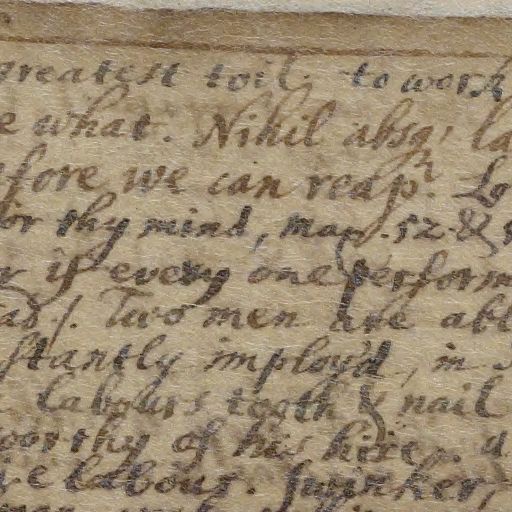 greatest toil. to work
what. Nihil absq;
fore we can reap. Lo
or thy mind, map. 52. &
if every one perform
Two men are abl
stantly imploy'd, in
labours tooth & nail
worthy of his hire.
labour. Swinker,